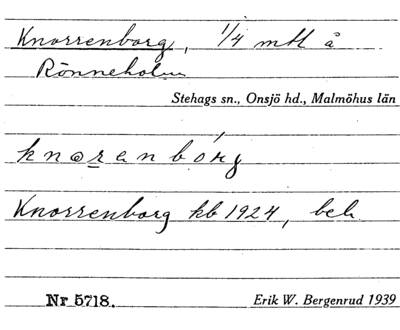 Knorrenborg, 1/4 mtl å
Rönneholm
Stehags sn., Onsjö hd., Malmöhus län
knɷrenbórg
Knorrenborg kb 1924, beb.
Nr 5718. Erik W. Bergenrud 1939